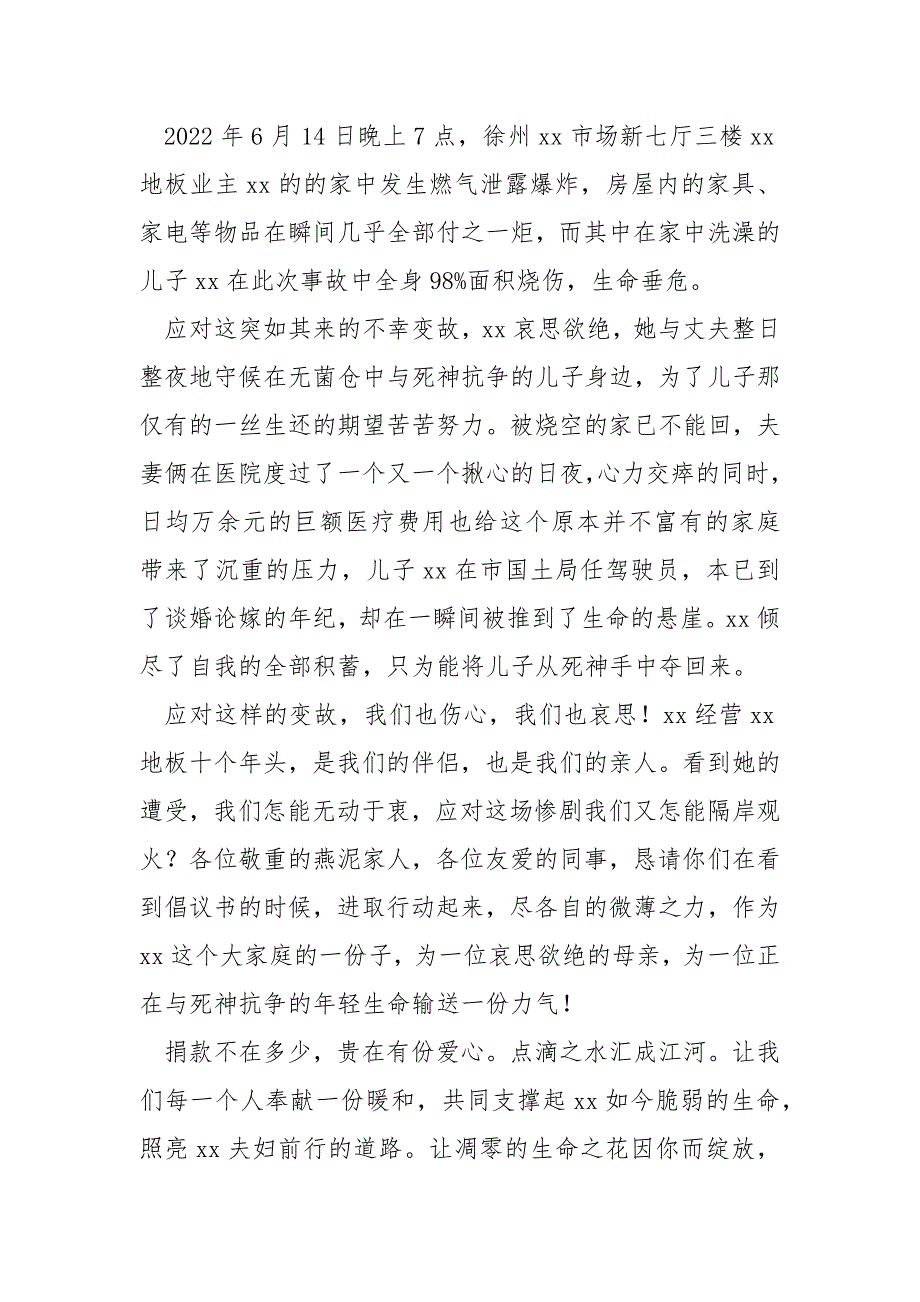 2022 年 6 月 14 日晚上 7 点，徐州 xx 市场新七厅三楼 xx
地板业主 xx 的的家中发生燃气泄露爆炸，房屋内的家具、
家电等物品在瞬间几乎全部付之一炬，而其中在家中洗澡的
儿子 xx 在此次事故中全身 98%面积烧伤，生命垂危。
应对这突如其来的不幸变故，xx 哀思欲绝，她与丈夫整日
整夜地守候在无菌仓中与死神抗争的儿子身边，为了儿子那
仅有的一丝生还的期望苦苦努力。被烧空的家已不能回，夫
妻俩在医院度过了一个又一个揪心的日夜，心力交瘁的同时，
日均万余元的巨额医疗费用也给这个原本并不富有的家庭
带来了沉重的压力，儿子 xx 在市国土局任驾驶员，本已到
了谈婚论嫁的年纪，却在一瞬间被推到了生命的悬崖。xx 倾
尽了自我的全部积蓄，只为能将儿子从死神手中夺回来。
应对这样的变故，我们也伤心，我们也哀思！xx 经营 xx
地板十个年头，是我们的伴侣，也是我们的亲人。看到她的
遭受，我们怎能无动于衷，应对这场惨剧我们又怎能隔岸观
火？各位敬重的燕泥家人，各位友爱的同事，恳请你们在看
到倡议书的时候，进取行动起来，尽各自的微薄之力，作为
xx 这个大家庭的一份子，为一位哀思欲绝的母亲，为一位正
在与死神抗争的年轻生命输送一份力气！
捐款不在多少，贵在有份爱心。点滴之水汇成江河。让我
们每一个人奉献一份暖和，共同支撑起 xx 如今脆弱的生命，
照亮 xx 夫妇前行的道路。让凋零的生命之花因你而绽放，